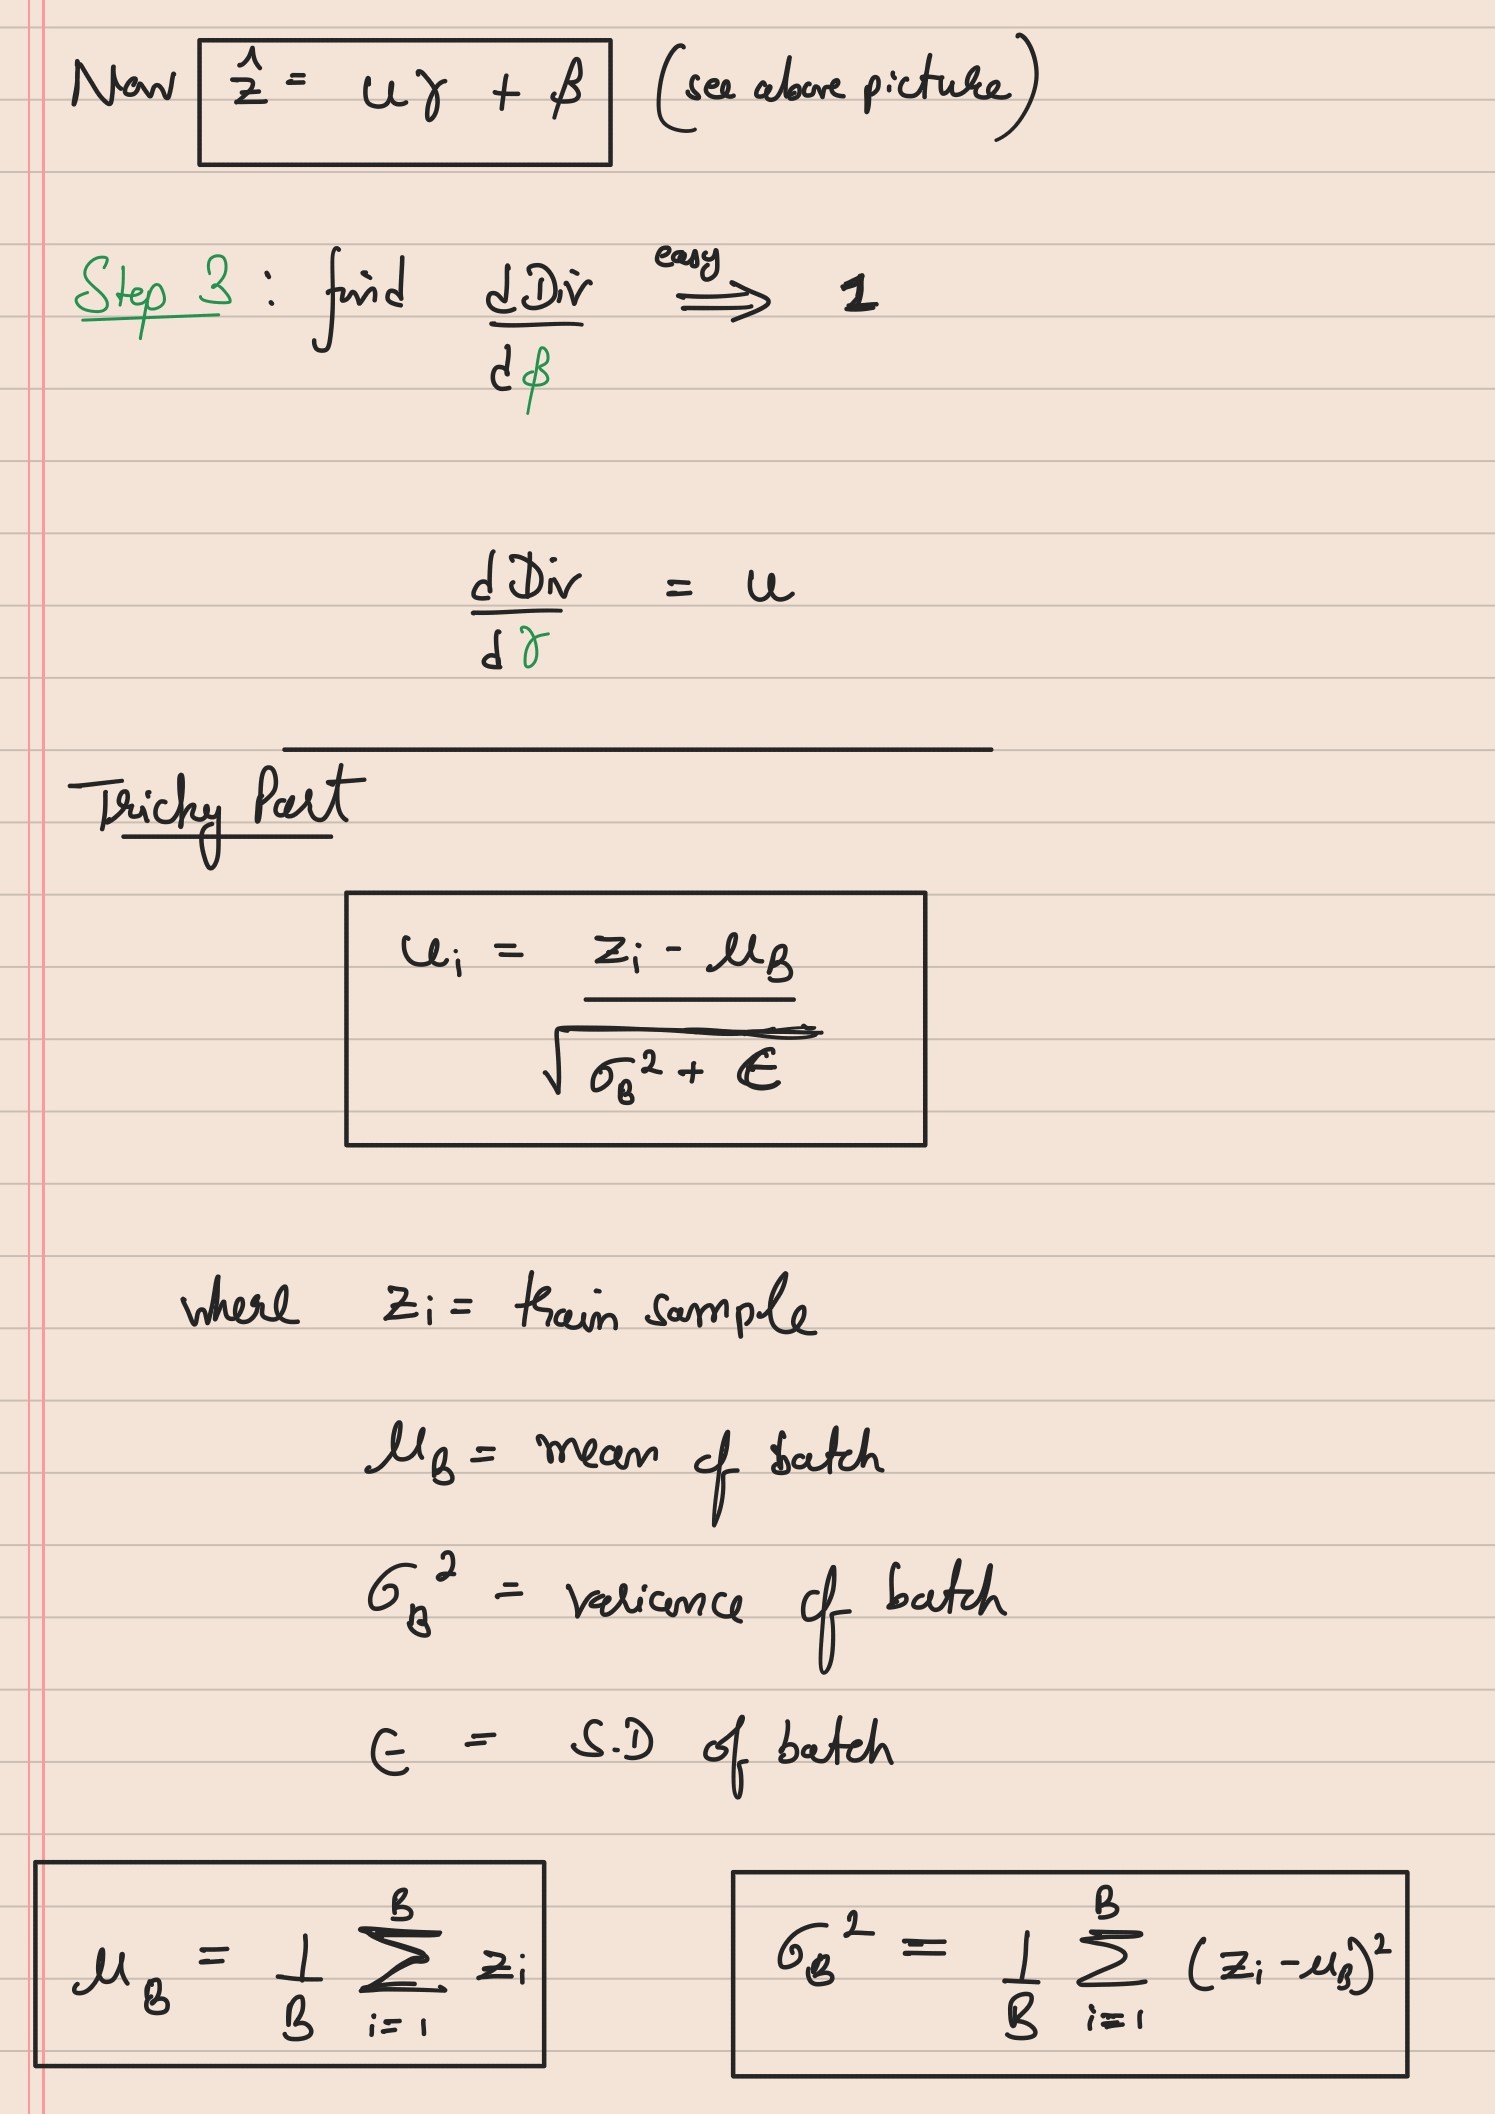 Now ẑ = uγ + β (see above picture)
Step 3 : find dDiv/dβ easy ⟹ 1
dDiv/dγ = u
Tricky Part
u_i = (z_i - μ_B) / √(σ_B² + ϵ)
where z_i = train sample
μ_B = mean of batch
σ_B² = variance of batch
ϵ = S.D of batch
μ_B = 1/B ∑_{i=1}^{B} z_i
σ_B² = 1/B ∑_{i=1}^{B} (z_i - μ_B)²